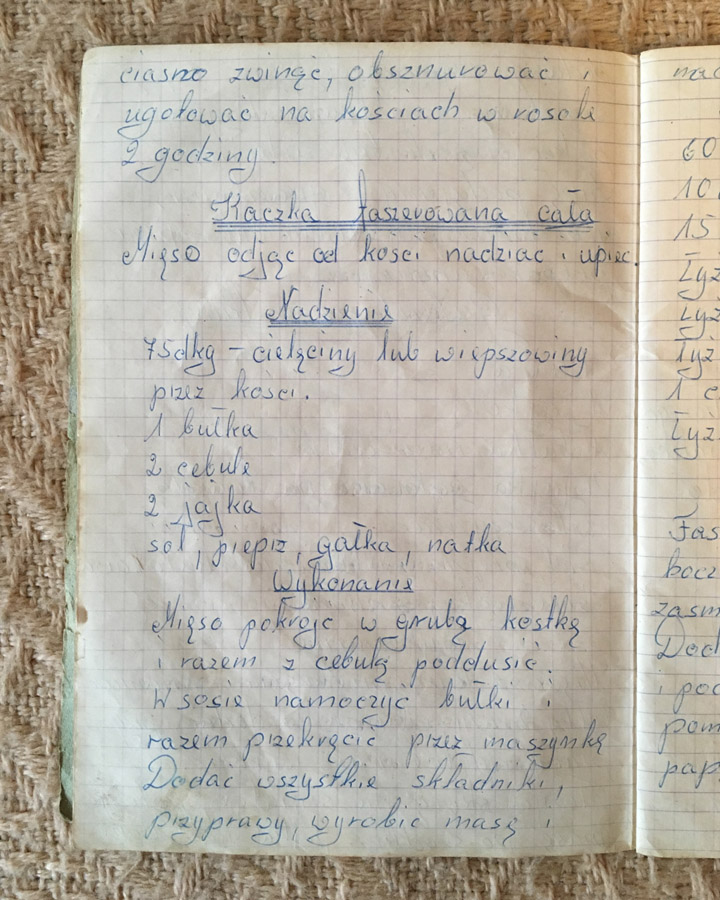 ciasno zwinąć, obsznurować i
ugotować na kościach w rosole
2 godziny.
Kaczka faszerowana cała
Mięso odjąc od kości nadziać i upiec.
Nadzienie
75dkg – cielęciny lub wieprzowiny
przez kości.
1 bułka
2 cebule
2 jajka
sól, pieprz, gałka, natka
Wykonanie
Mięso pokroić w grubą kostkę
i razem z cebulą poddusić.
W sosie namoczyć bułki i
razem przekręcić przez maszynkę
Dodać wszystkie składniki,
przyprawy, wyrobic masę i
60
10
15
łyż
łyż
łyż
1
łyż
Fas
bocz
zasm
Dod
i pod
pom
pap